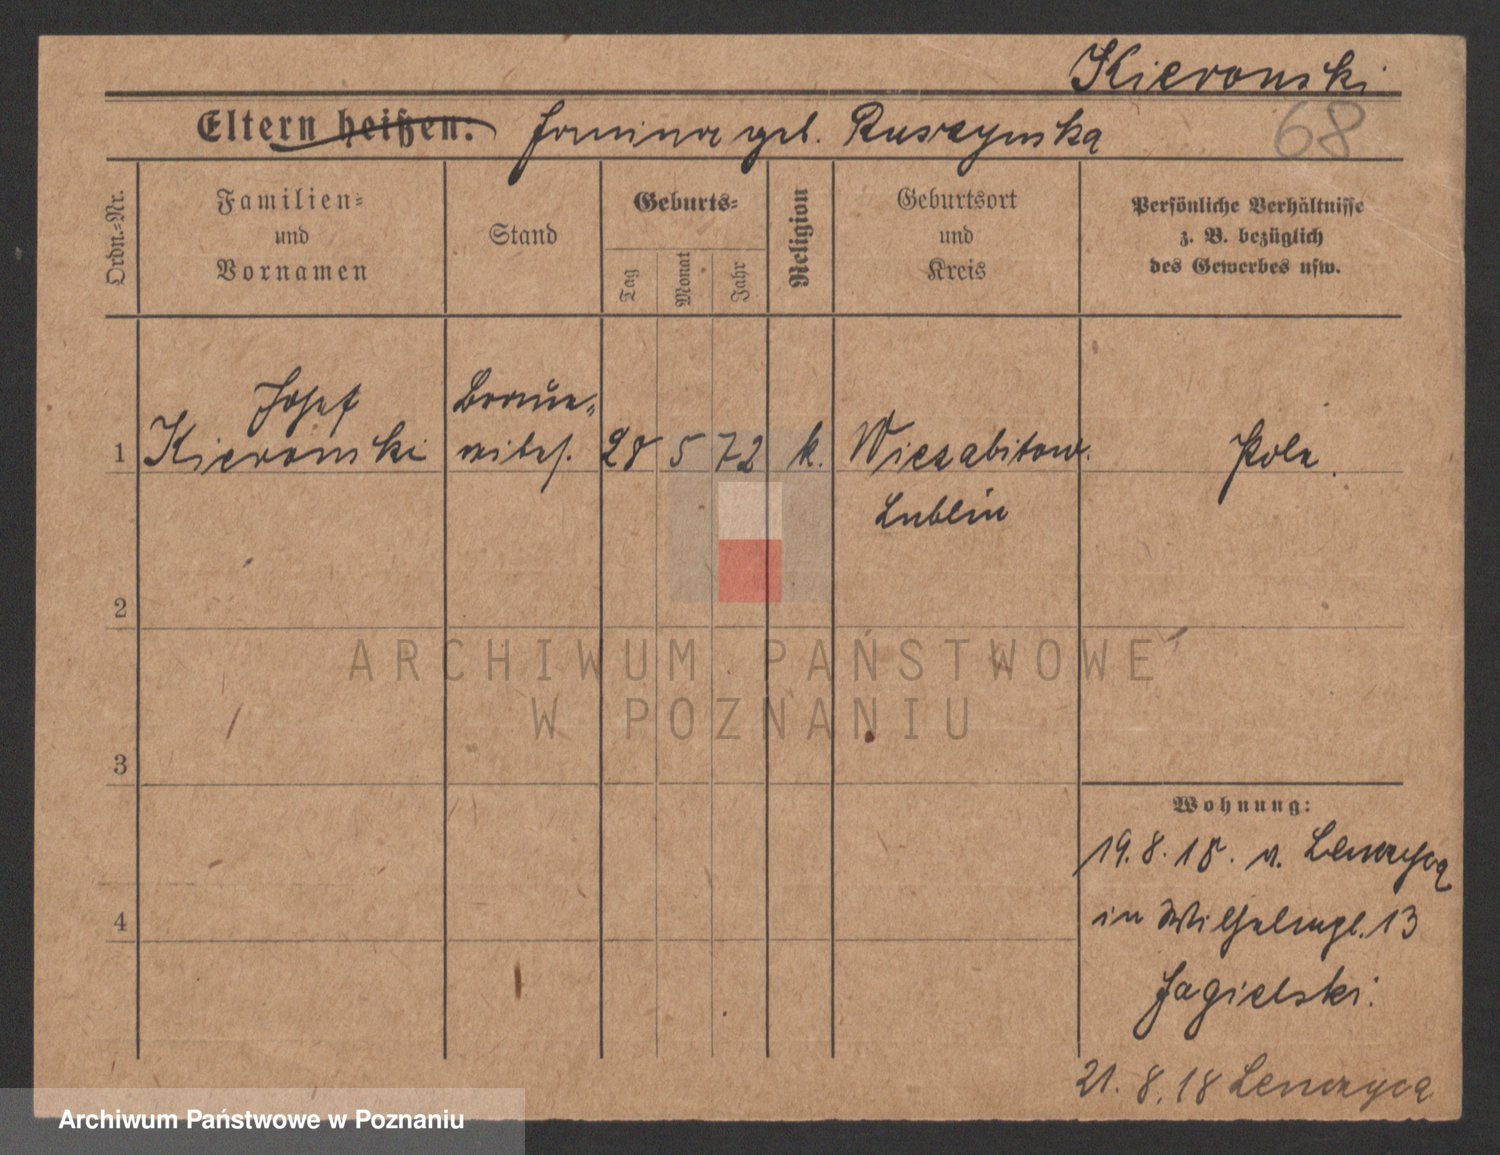 Kieronski
Eltern heißen: Janina geb. Ruszynska
68
Ordn.=Nr.
Familien=
und
Vornamen
Stand
Geburts=
Tag
Monat
Jahr
Religion
Geburtsort
und
Kreis
Persönliche Verhältnisse
z. B. bezüglich
des Gewerbes usw.
Josef
1 Kieronski 28 5 72 k. Pole.
Lublin
2
ARCHIWUM PAŃSTWOWE
W POZNANIU
3
Wohnung:
19.8.18. v. Lenczyca
4
in Wilhelmpl. 13
Jagielski.
21.8.18 Lenczyca
Archiwum Państwowe w Poznaniu